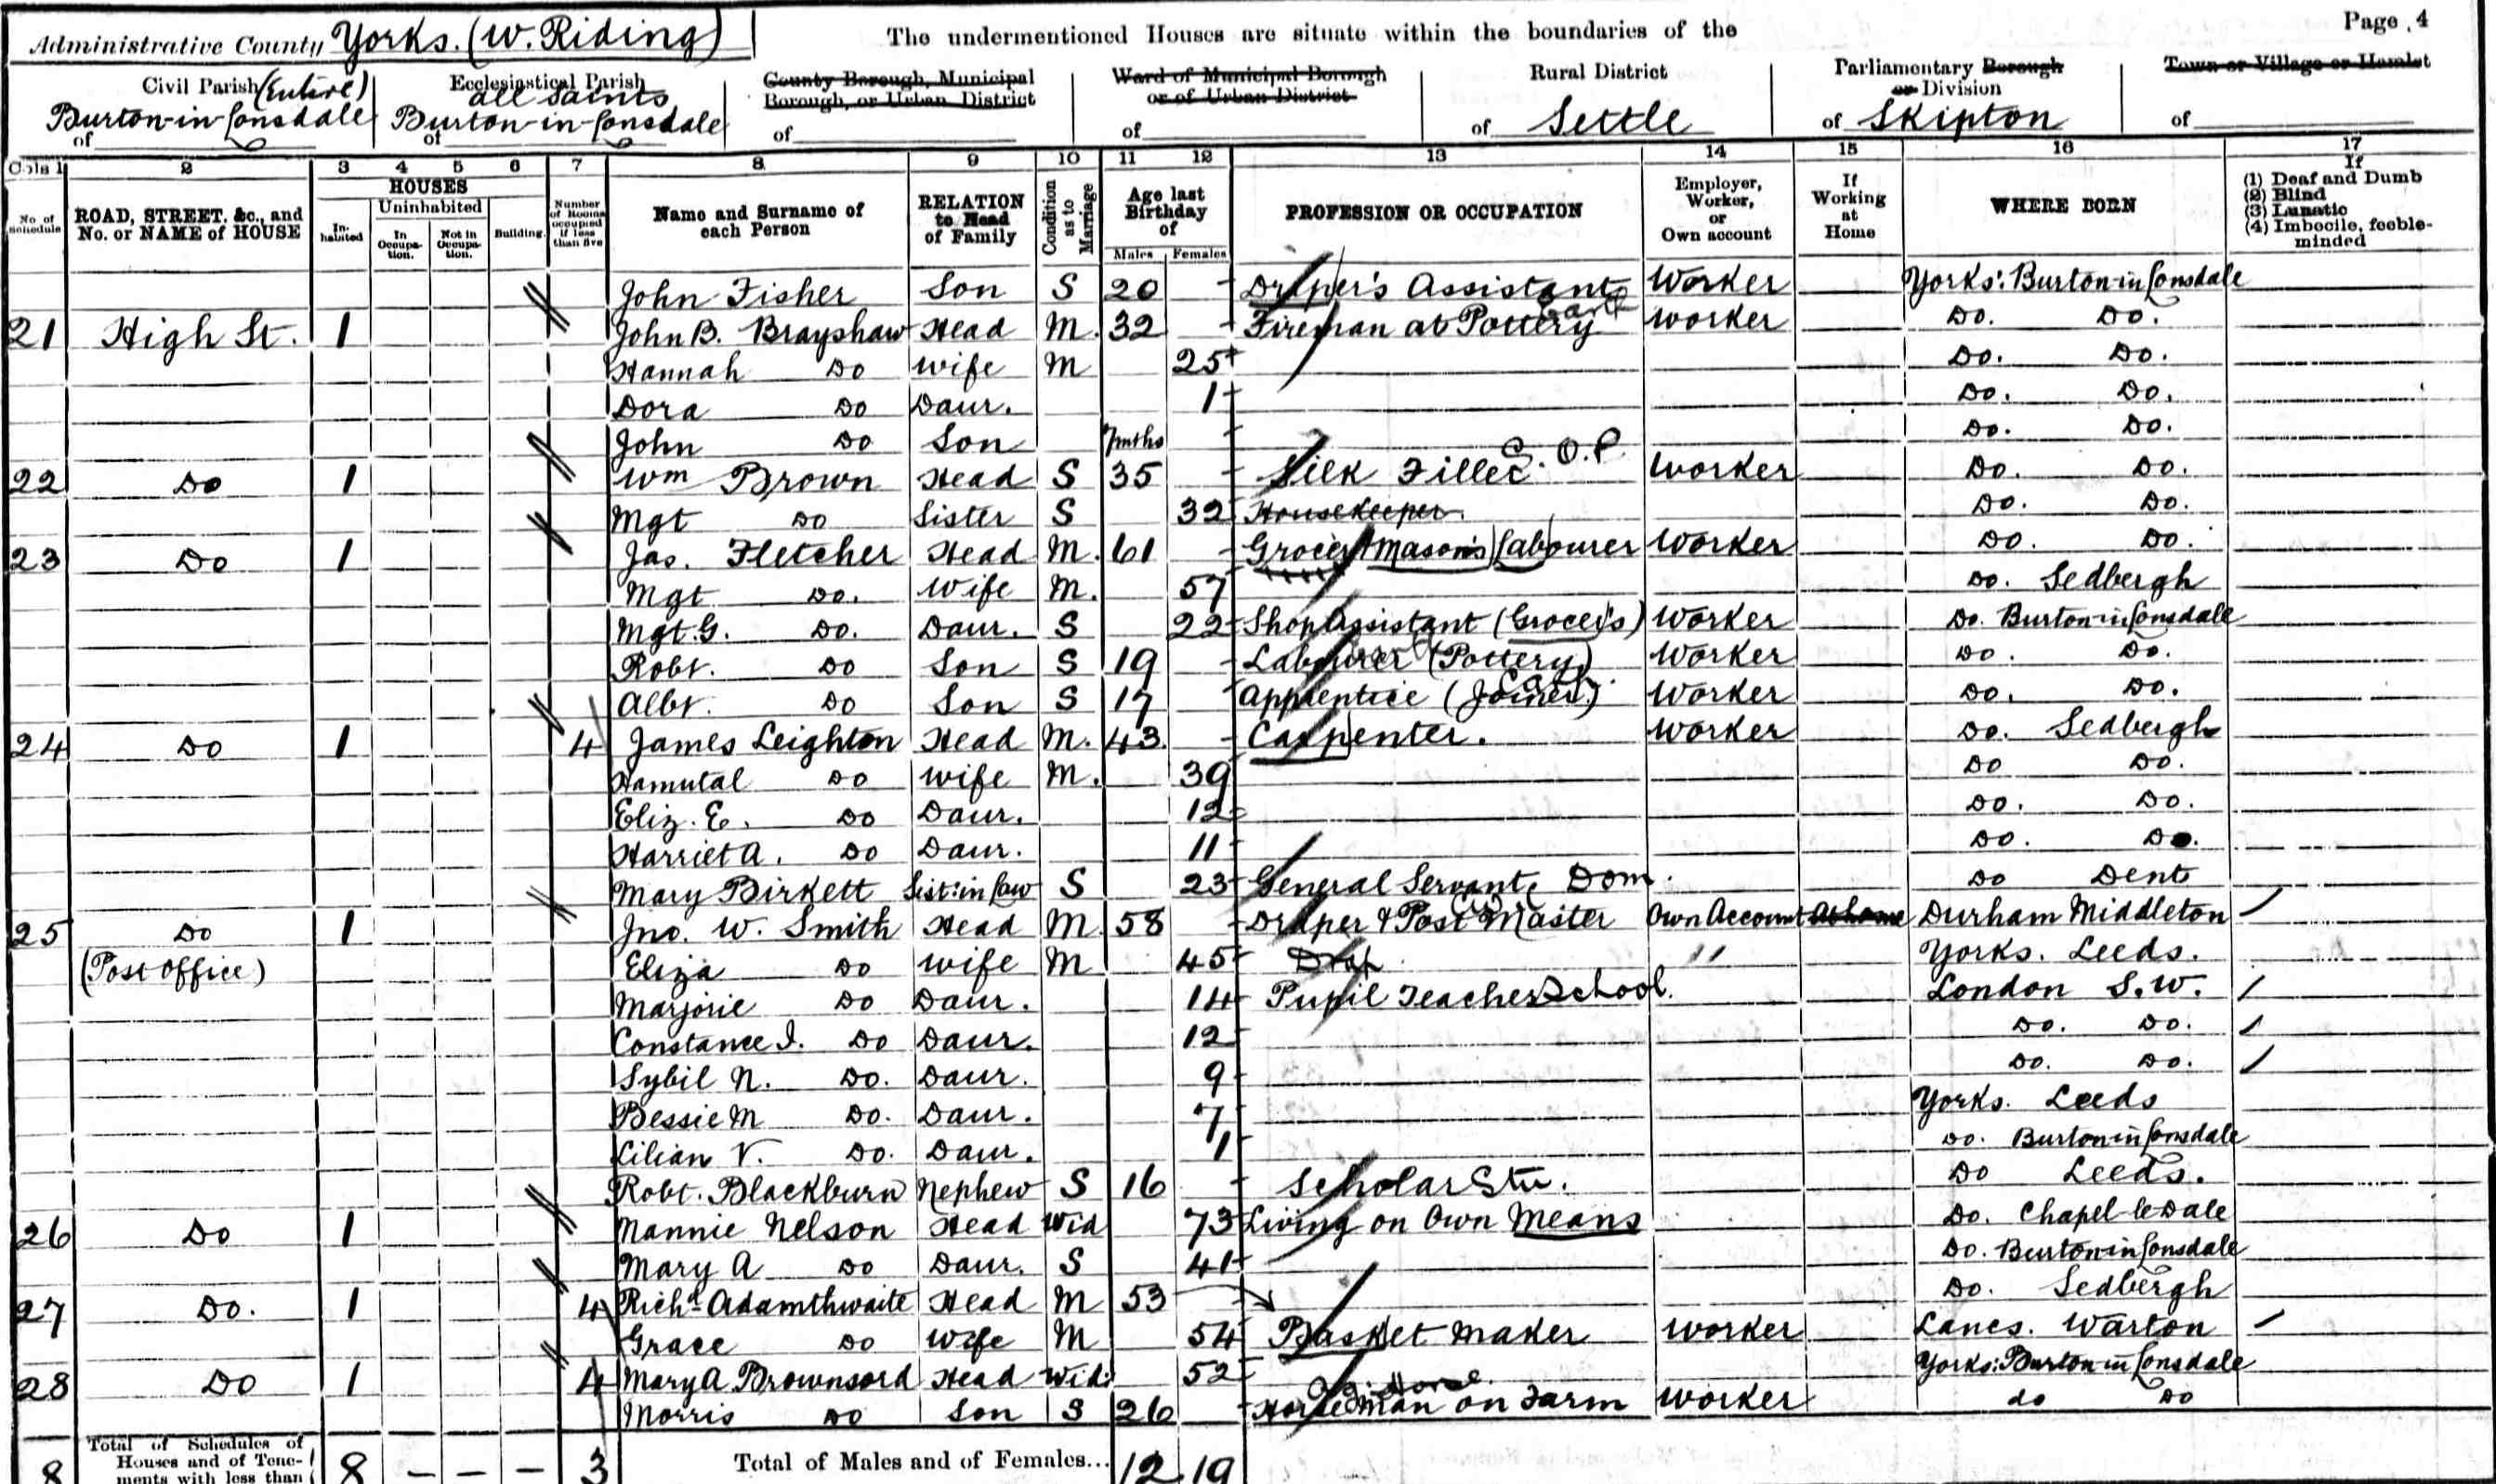 Administrative County Yorks. (W. Riding) The undermentioned Houses are situate within the boundaries of the Page 4
Civil Parish (Entire) of Burton-in-Lonsdale
Ecclesiastical Parish of All Saints Burton-in-Lonsdale
County Borough, Municipal Borough, or Urban District of
Ward of Municipal Borough or of Urban District of
Rural District of Settle
Parliamentary Borough or Division of Skipton
Town or Village or Hamlet of
Cols 1 2 3 4 5 6 7 8 9 10 11 12 13 14 15 16 17
No. of Schedule
ROAD, STREET, &c., and No. or NAME of HOUSE
HOUSES
Inhabited
Uninhabited
In Occupation.
Not in Occupation.
Building.
Number of Rooms occupied if less than five
Name and Surname of each Person
RELATION to Head of Family
Condition as to Marriage
Age last Birthday of
Males Females
PROFESSION OR OCCUPATION
Employer, Worker, or Own account
If Working at Home
WHERE BORN
If
(1) Deaf and Dumb
(2) Blind
(3) Lunatic
(4) Imbecile, feeble-minded
John Fisher Son S 20 Draper's Assistant Worker Yorks: Burton in Lonsdale
21 High St. 1 John B. Brayshaw Head M. 32 Fireman at Pottery Worker Do. Do.
Hannah Do Wife M 25 Do. Do.
Dora Do Daur. 1 Do. Do.
John Do Son 7mths Do. Do.
22 Do 1 Wm Brown Head S 35 Silk Filler S.O.P. Worker Do. Do.
Mgt Do Sister S 32 Housekeeper. Do. Do.
23 Do 1 Jas. Fletcher Head M. 61 Grocer Mason's Labourer Worker Do. Do.
Mgt Do. Wife M. 57 Do. Sedbergh
Mgt. G. Do. Daur. S 22 Shop Assistant (Grocer's) Worker Do. Burton in Lonsdale
Robt. Do Son S 19 Labourer (Pottery) Worker Do. Do.
Albt. Do Son S 17 Apprentice (Joiner) Worker Do. Do.
24 Do 1 4 James Leighton Head M. 43 Carpenter. Worker Do. Sedbergh
Hamutal Do Wife M. 39 Do Do.
Eliz. E. Do Daur. 12 Do. Do.
Harriet A. Do Daur. 11 Do. Do.
Mary Birkett Sist: in Law S 23 General Servant Dom. Do Dent
25 Do 1 Jno. W. Smith Head M. 58 Draper & Post Master Own Account At home Durham Middleton
(Post Office) Eliza Do Wife M 45 Drap " Yorks. Leeds.
Marjorie Do Daur. 14 Pupil Teacher School. London S.W.
Constance I. Do Daur. 12 Do. Do.
Sybil N. Do. Daur. 9 Do. Do.
Bessie M Do. Daur. 7 Yorks. Leeds
Lilian V. Do. Daur. 1 Do. Burton in Lonsdale
Robt. Blackburn Nephew S 16 Scholar Stu. Do Leeds.
26 Do 1 Nannie Nelson Head Wid 73 Living on Own Means Do. Chapel-le Dale
Mary A Do Daur. S 41 Do. Burton in Lonsdale
27 Do. 1 4 Richd Adamthwaite Head M 53 Do. Sedbergh
Grace Do Wife M 54 Basket Maker Worker Lancs. Warton
28 Do 1 4 Mary A Brownsord Head Wid: 52 Yorks: Burton in Lonsdale
Morris Do Son S 26 Horseman on Farm Worker do Do
8 Total of Schedules of Houses and of Tenements with less than 8 – – – 3 Total of Males and of Females... 12 19